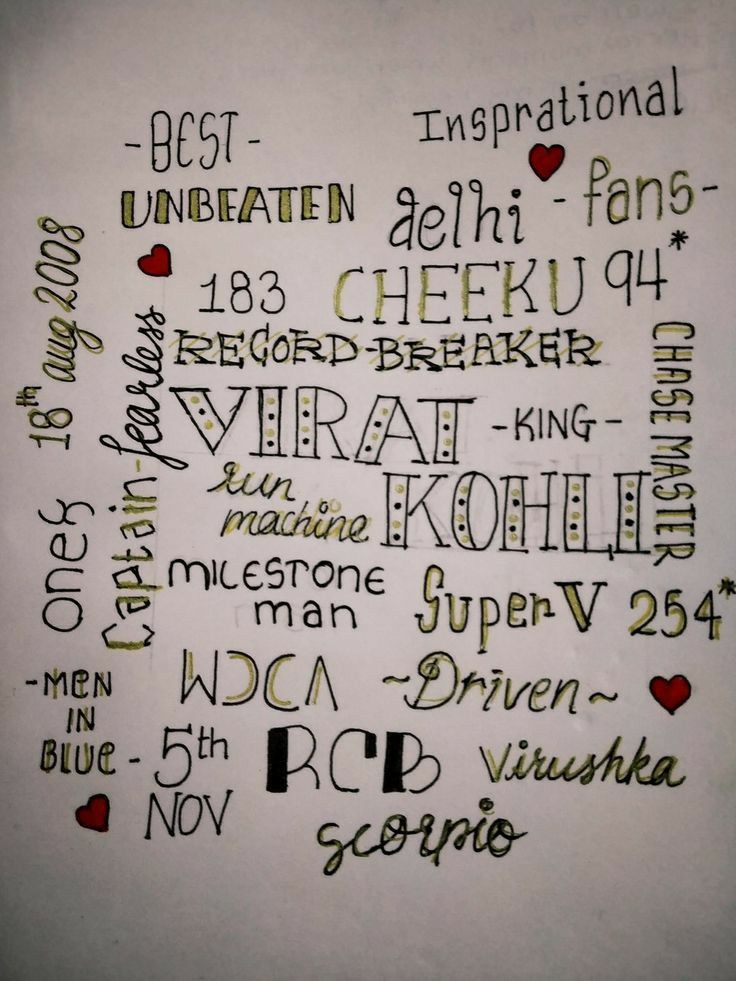 -BEST-
Insprational
UNBEATEN
delhi
-fans-
18th aug 2008
183
CHEEKU
94*
fearless
RECORD-BREAKER
CHASE MASTER
VIRAT
-KING-
run
machine
KOHLI
one8
Captain
MILESTONE
man
Super V
254*
-MEN
IN
BLUE-
WDCA
~Driven~
5th
NOV
RCB
Virushka
scorpio